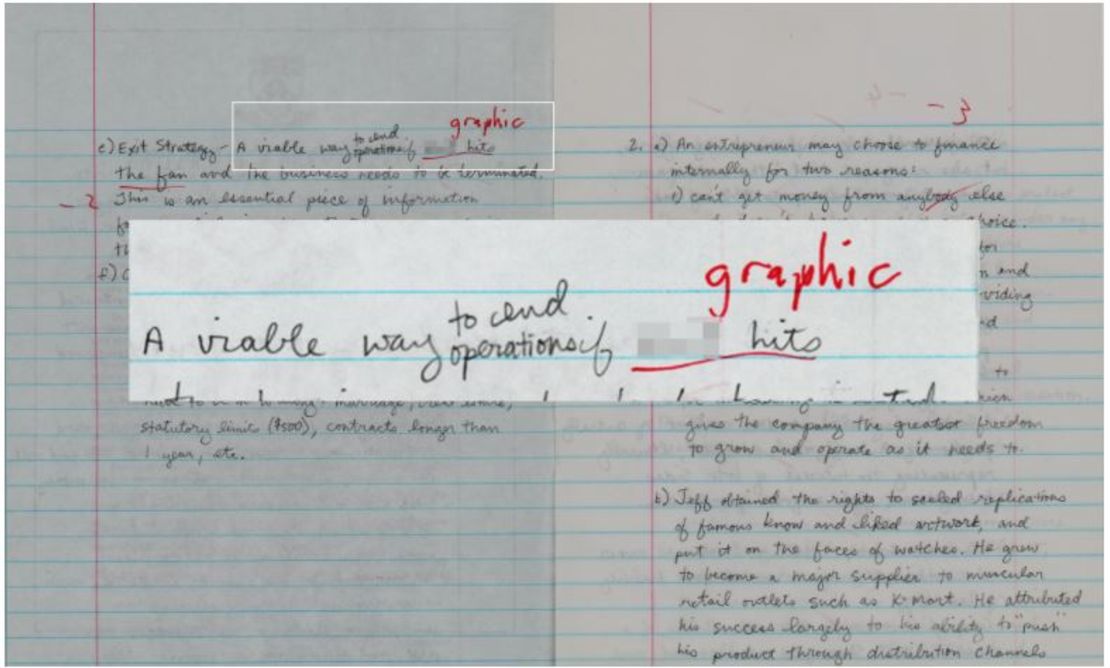 graphic
e) Exit Strategy - A viable way to end operations if hits
the fan and the business needs to be terminated.
-2 This is an essential piece of information
f)
graphic
A viable way to end operations if hits
statutory limit ($500), contracts longer than
1 year, etc.
-3
2. a) An entrepreneur may choose to finance
internally for two reasons:
1) can't get money from anybody else
choice.
for
and
viding
to
gives the company the greatest freedom
to grow and operate as it needs to.
b) Jeff obtained the rights to scaled replications
of famous know and liked artwork, and
put it on the faces of watches. He grew
to become a major supplier to
retail outlets such as K-Mart. He attributed
his success largely to his ability to "push"
his product through distribution channels